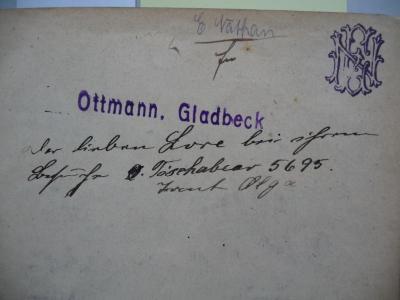 E Nathan
Ottmann, Gladbeck
Der lieben Lore bei ihrem
Besuche Töschabeav 5695.
Olga